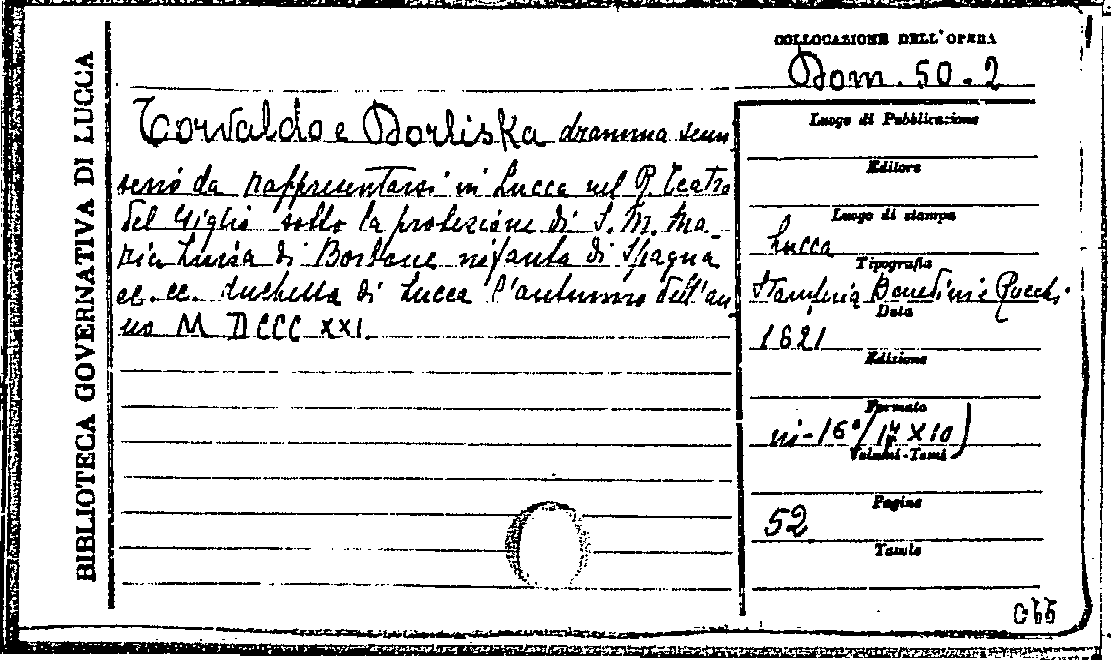 BIBLIOTECA GOVERNATIVA DI LUCCA
COLLOCAZIONE DELL'OPERA
Dom. 50-2
Torvaldo e Dorliska dramma sem
serio da rappresentarsi in Lucca nel R. Teatro
del Giglio sotto la protezione di S. M. Ma-
ria Luisa di Borbone infanta di Spagna
ec. ec. duchessa di Lucca l'autunno dell'an-
no MDCCCXXI.
Luogo di Pubblicazione
Editore
Luogo di stampa
Lucca
Tipografia
Stamperia Benedini e Rocchi
Data
1821
Edizione
Formato
in-16°(14x10)
Volumi-Tomi
Pagine
52
Tavole